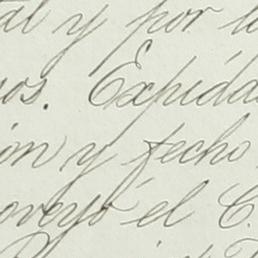 al y por lo
os. Expidas
ón y fecho
oveyó el C.